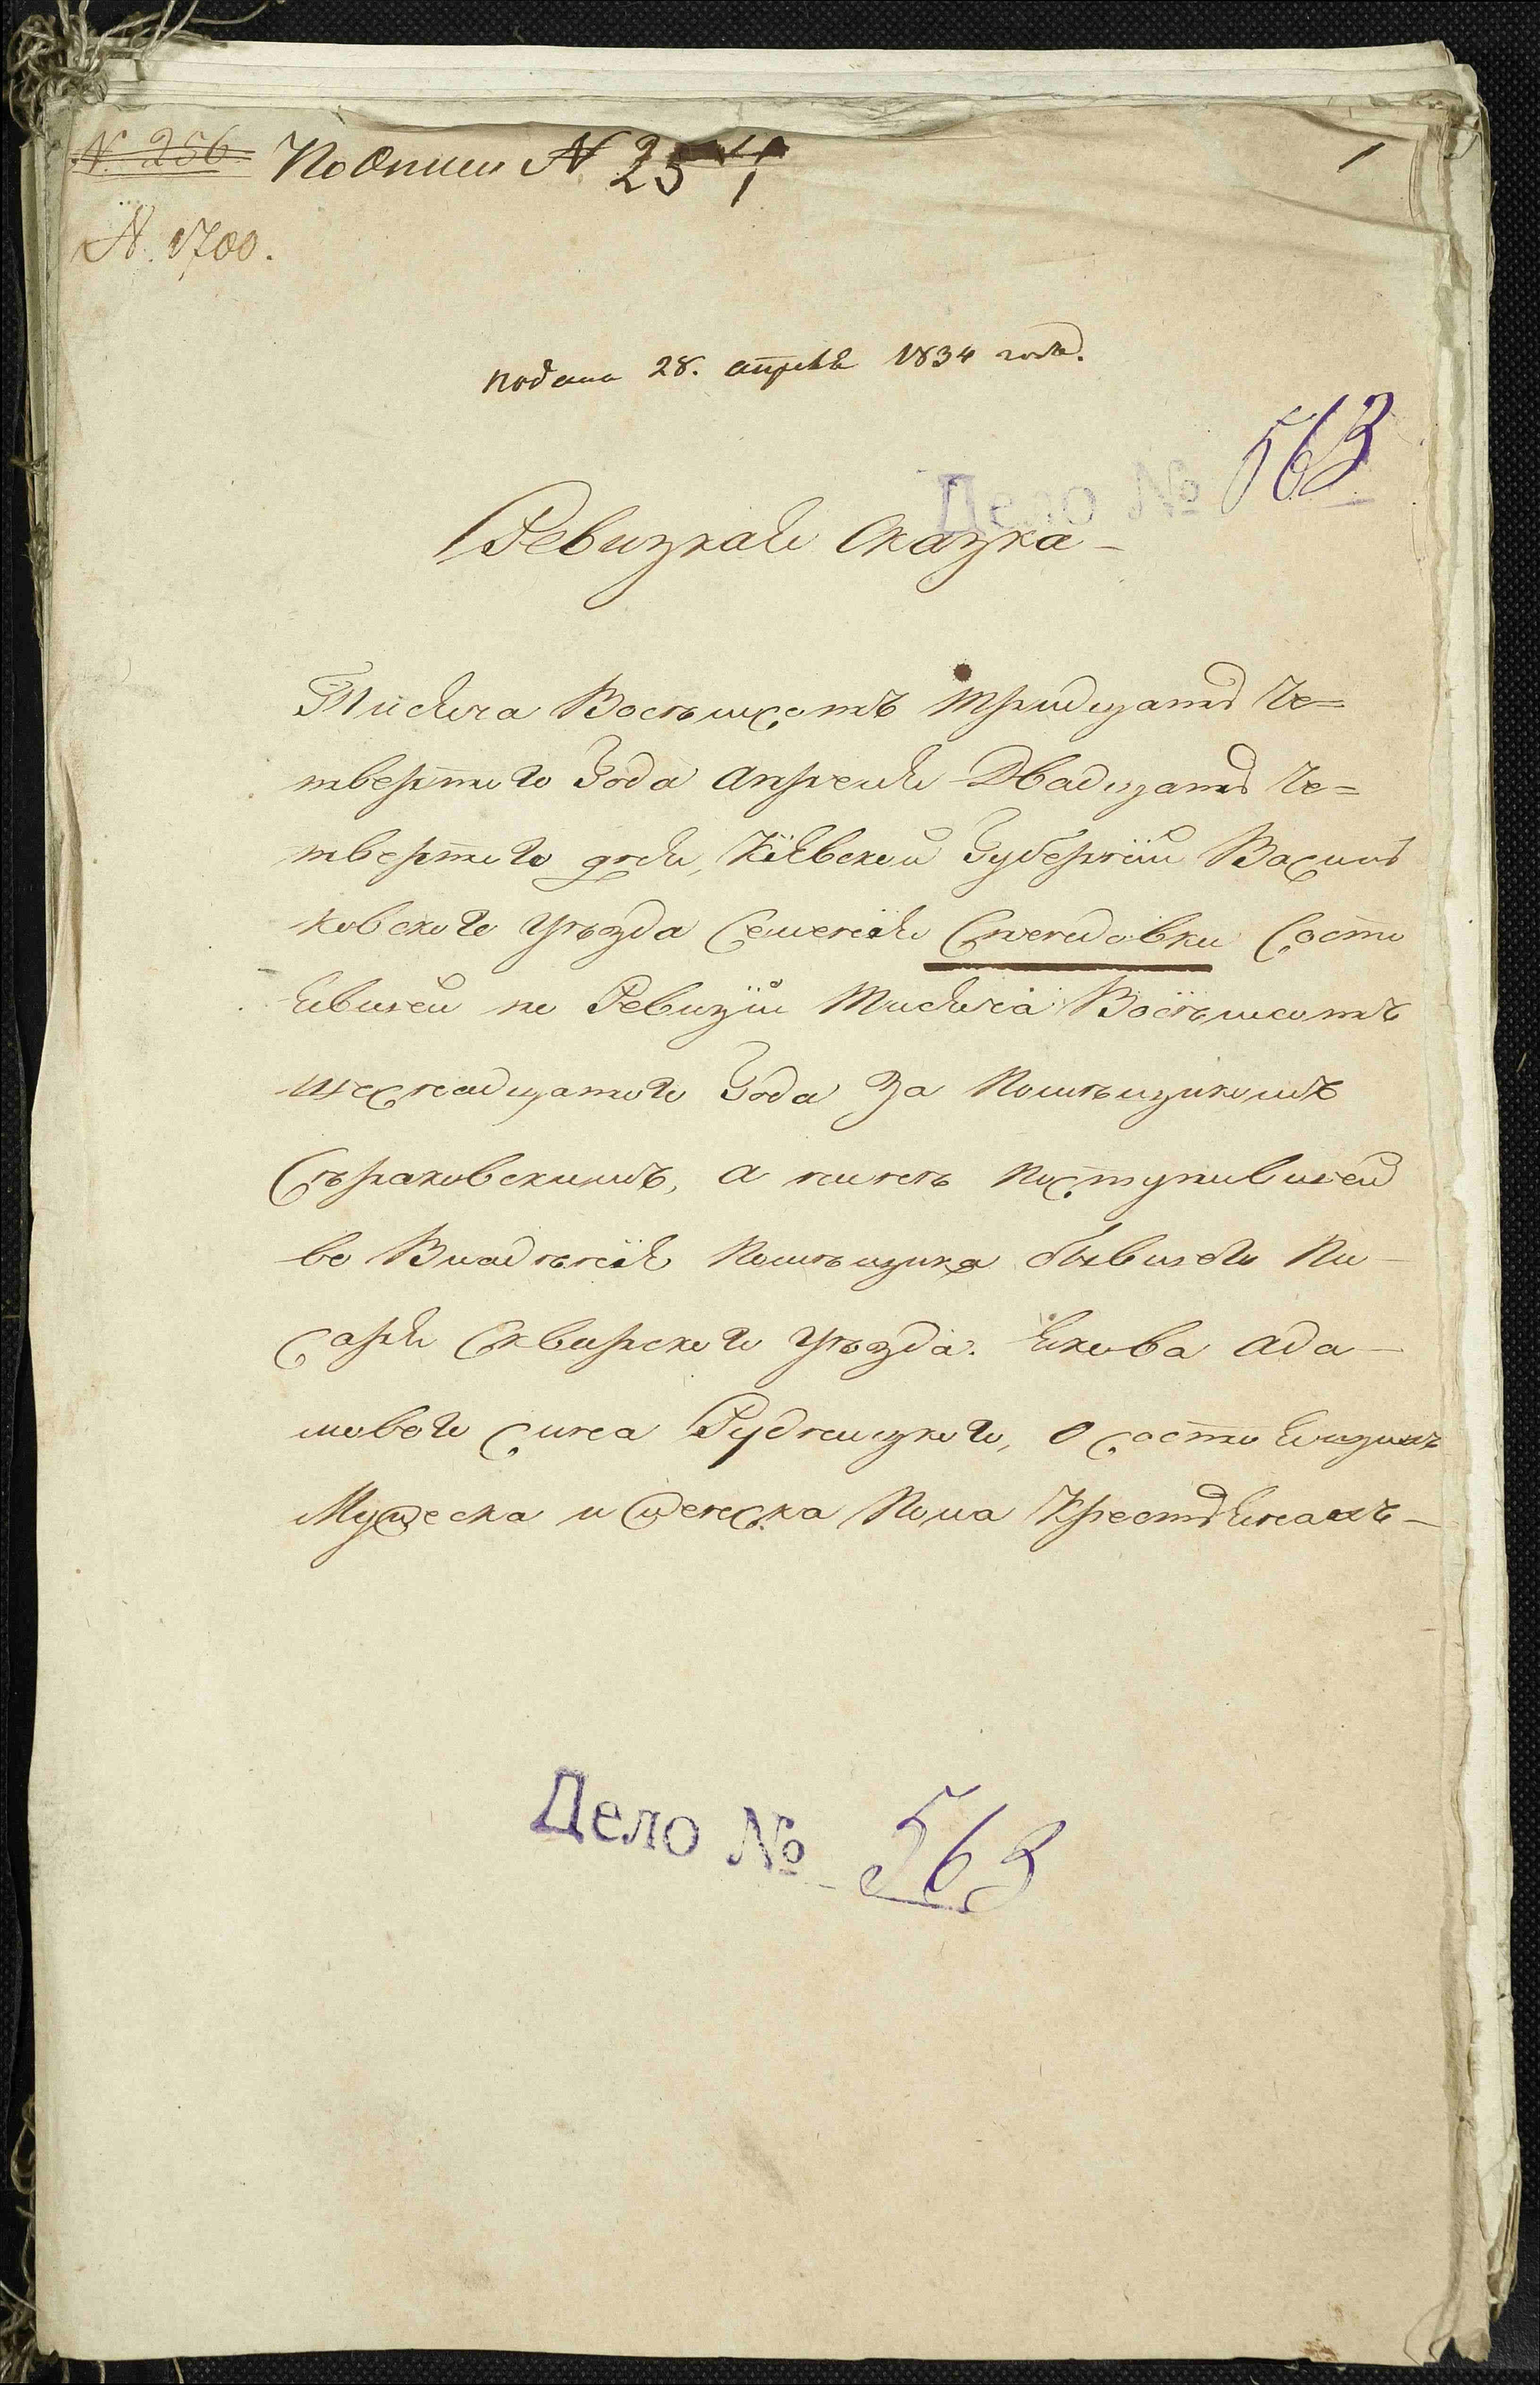 N. 256 По описи N 251
1
N. 1700.
подана 28. апреля 1834 года.
Дело № 563
Ревизкая Сказка
Тисяча Восѣмсотъ тридцать че=
твертого Года апреля Двадцать че=
твертого дня, Кіевской Губерніи Василь
ковского Уѣзда Селенія Состо
явшей по Ревизіи Тисяча Восѣмсотъ
шеснадцатого Года за Помѣщикомъ
Сѣраковскимъ, а нинѣ поступившей
во Владѣніе Помѣщика бывшего Пи-
саря Сквирского Уѣзда Якова Ада-
мового сина Рудницкого, о состоящихъ
Мужеска и женска Пола Крестьянахъ-
Дело № 563